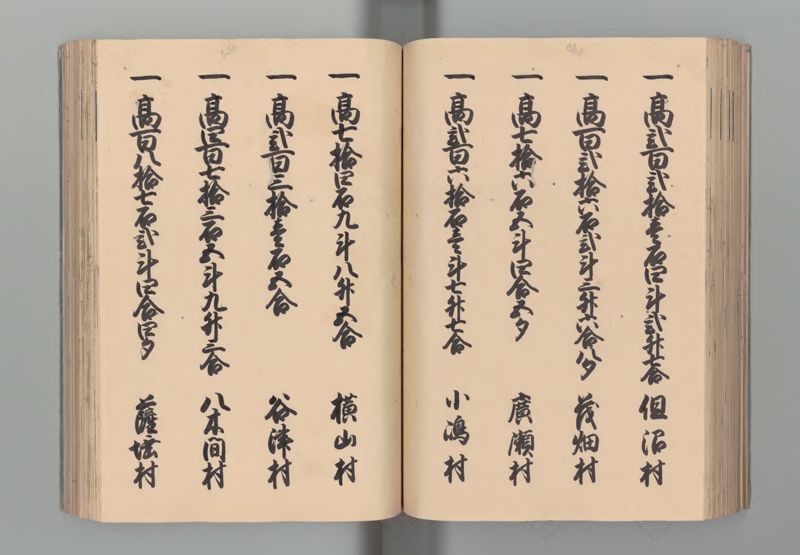 一 高弐百弐拾壱石四斗弐升七合 但沼村
一 高百弐拾六石弐斗三升六合八夕 茂畑村
一 高七拾六石五斗四合五夕 廣瀬村
一 高弐百六拾石壱斗七升七合 小嶋村
一 高七拾四石九斗八升五合 横山村
一 高弐百三拾壱石五合 谷津村
一 高四百七拾三石五斗九升三合 八木間村
一 高百八拾七石弐斗四合四夕 薩埵村